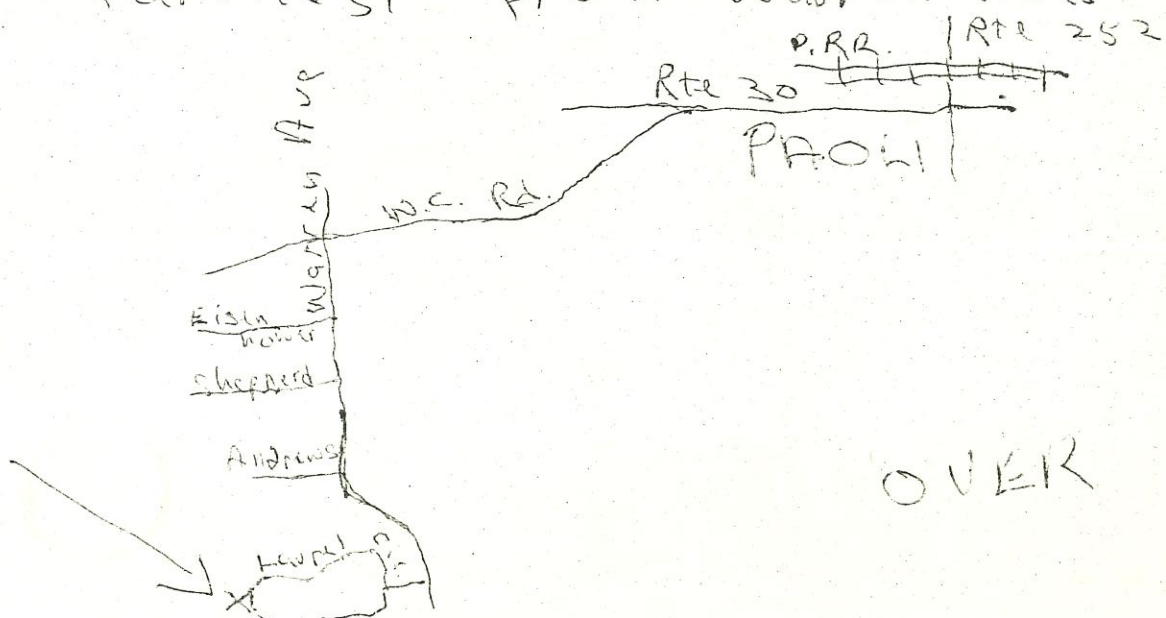 P.RR.
Rte 252
Rte 30
PAOLI
Warren Ave
W.C. Rd.
Eisen
hower
Shepperd
Andrews
OVER
Laurel
X